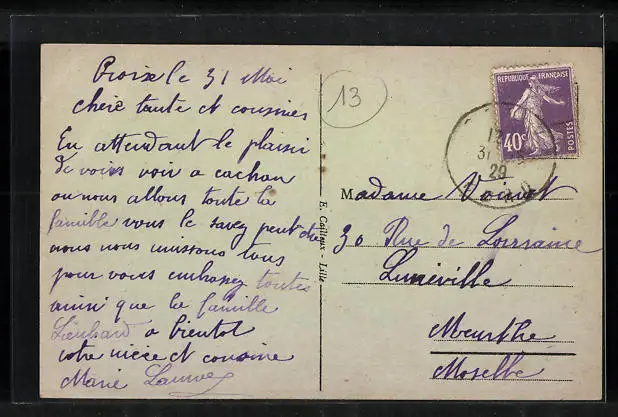 Croix le 31 Mai
chère tante et cousines
En attendant le plaisir
de vous voir a cachan
ou nous allons toute la
famille vous le savez peut etre
nous nous unissons tous
pour vous embrassez toutes
ainsi que la famille
Liénhard a bientot
votre niece et cousine
Marie
13
E. Cailteux - Lille
REPUBLIQUE FRANÇAISE
40c
POSTES
31
29
Madame Voinot
30 Rue de Lorraine
Lunéville
Meurthe
Moselle